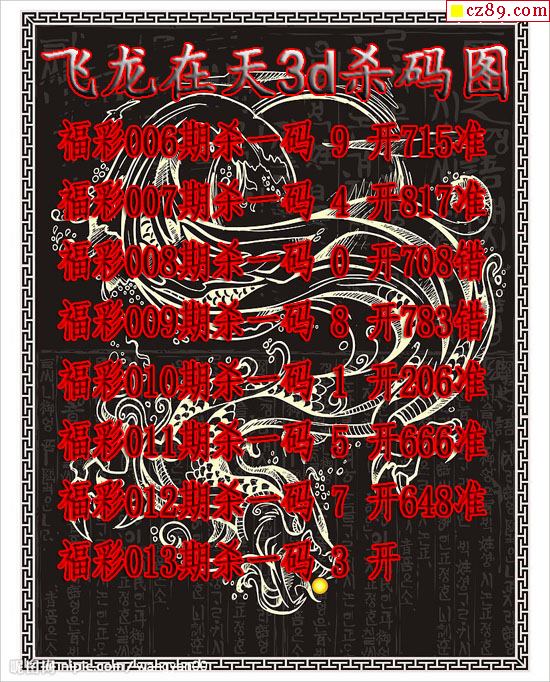 cz89.com
飞龙在天3d杀码图
福彩006期杀一码 9 开715准
福彩007期杀一码 4 开817准
福彩008期杀一码 0 开708错
福彩009期杀一码 8 开783错
福彩010期杀一码 1 开206准
福彩011期杀一码 5 开666准
福彩012期杀一码 7 开648准
福彩013期杀一码 3 开